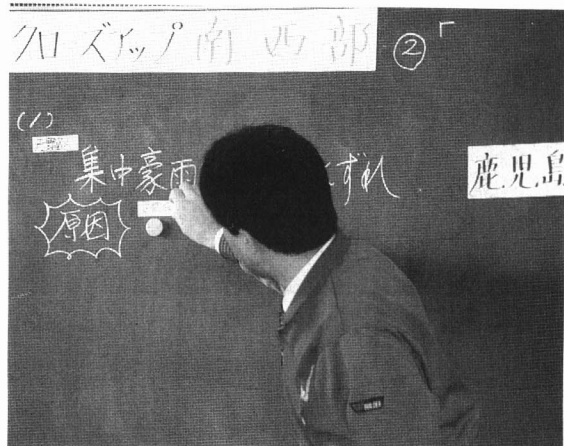 クローズアップ 南西部 ②「
(1)
集中豪雨 くずれ 鹿児島
原因